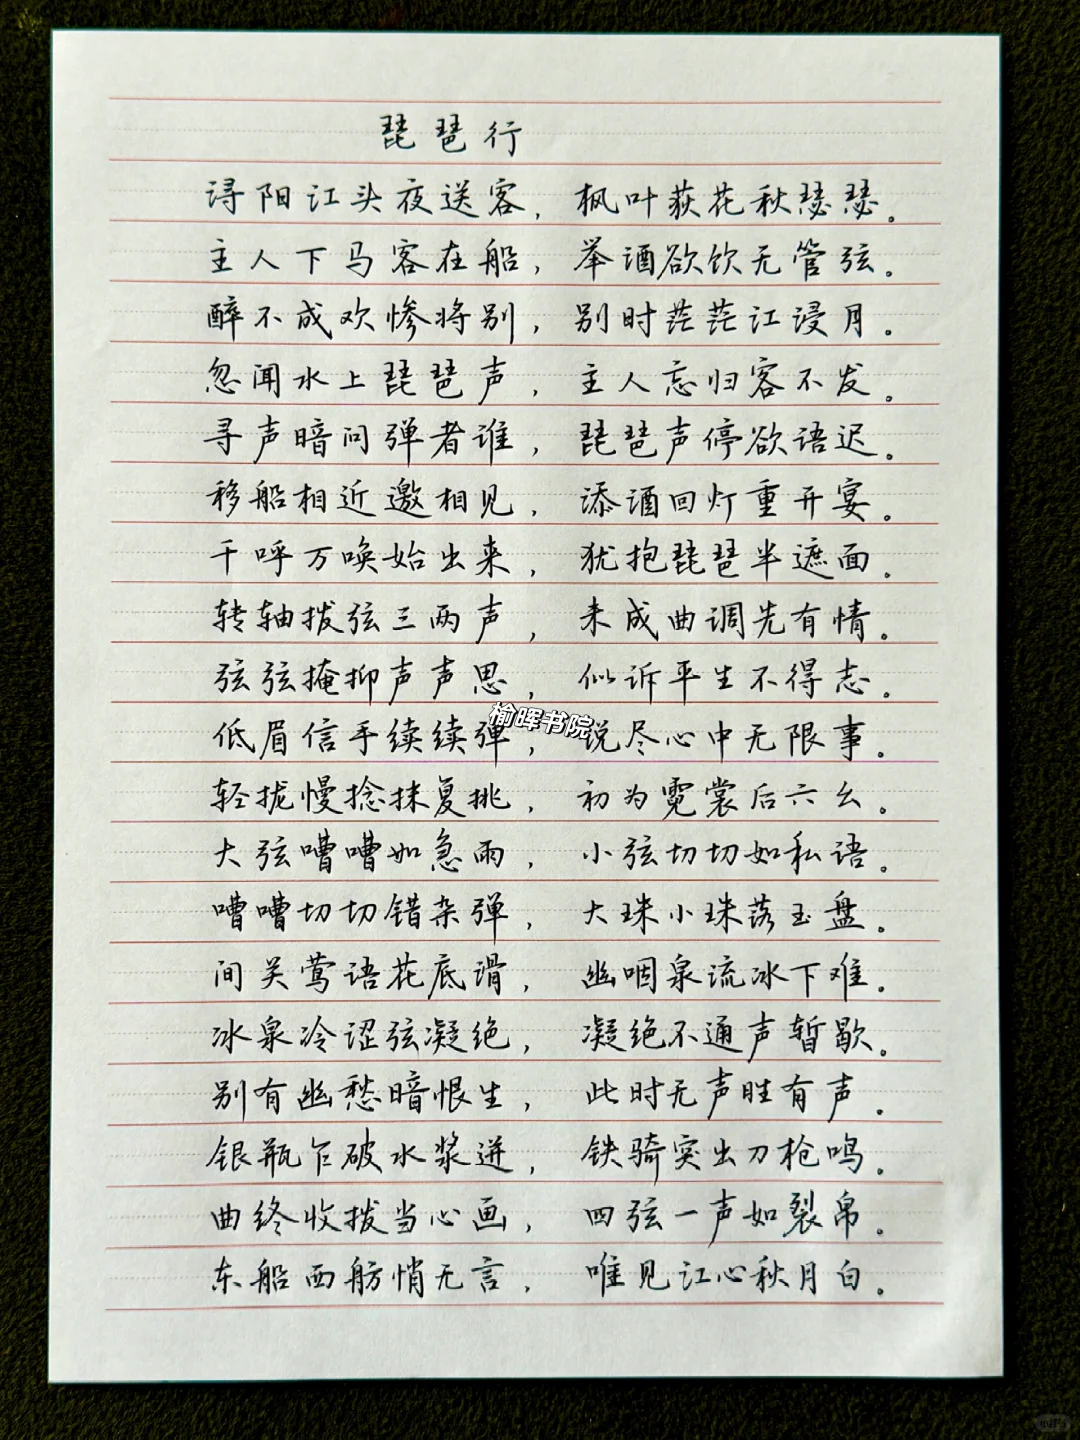 琵琶行
浔阳江头夜送客，枫叶荻花秋瑟瑟。
主人下马客在船，举酒欲饮无管弦。
醉不成欢惨将别，别时茫茫江浸月。
忽闻水上琵琶声，主人忘归客不发。
寻声暗问弹者谁，琵琶声停欲语迟。
移船相近邀相见，添酒回灯重开宴。
千呼万唤始出来，犹抱琵琶半遮面。
转轴拨弦三两声，未成曲调先有情。
弦弦掩抑声声思，似诉平生不得志。
低眉信手续续弹，说尽心中无限事。
榆晖书院
轻拢慢捻抹复挑，初为霓裳后六幺。
大弦嘈嘈如急雨，小弦切切如私语。
嘈嘈切切错杂弹，大珠小珠落玉盘。
间关莺语花底滑，幽咽泉流冰下难。
冰泉冷涩弦凝绝，凝绝不通声暂歇。
别有幽愁暗恨生，此时无声胜有声。
银瓶乍破水浆迸，铁骑突出刀枪鸣。
曲终收拨当心画，四弦一声如裂帛。
东船西舫悄无言，唯见江心秋月白。